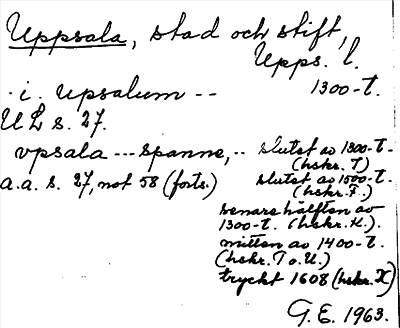 Uppsala, stad och stift,
Upps. l.
i upsalum -- 1300-t.
UL s. 27.
vpsala --- spanne, -- slutet av 1300-t.
(hskr. T)
a.a. s. 27, not 58 (forts.) slutet av 1500-t.
(hskr. F.)
senare hälften av
1300-t. (hskr. K.).
mitten av 1400-t.
(hskr. T o. U.)
tryckt 1608 (hskr. X)
G.E. 1963.